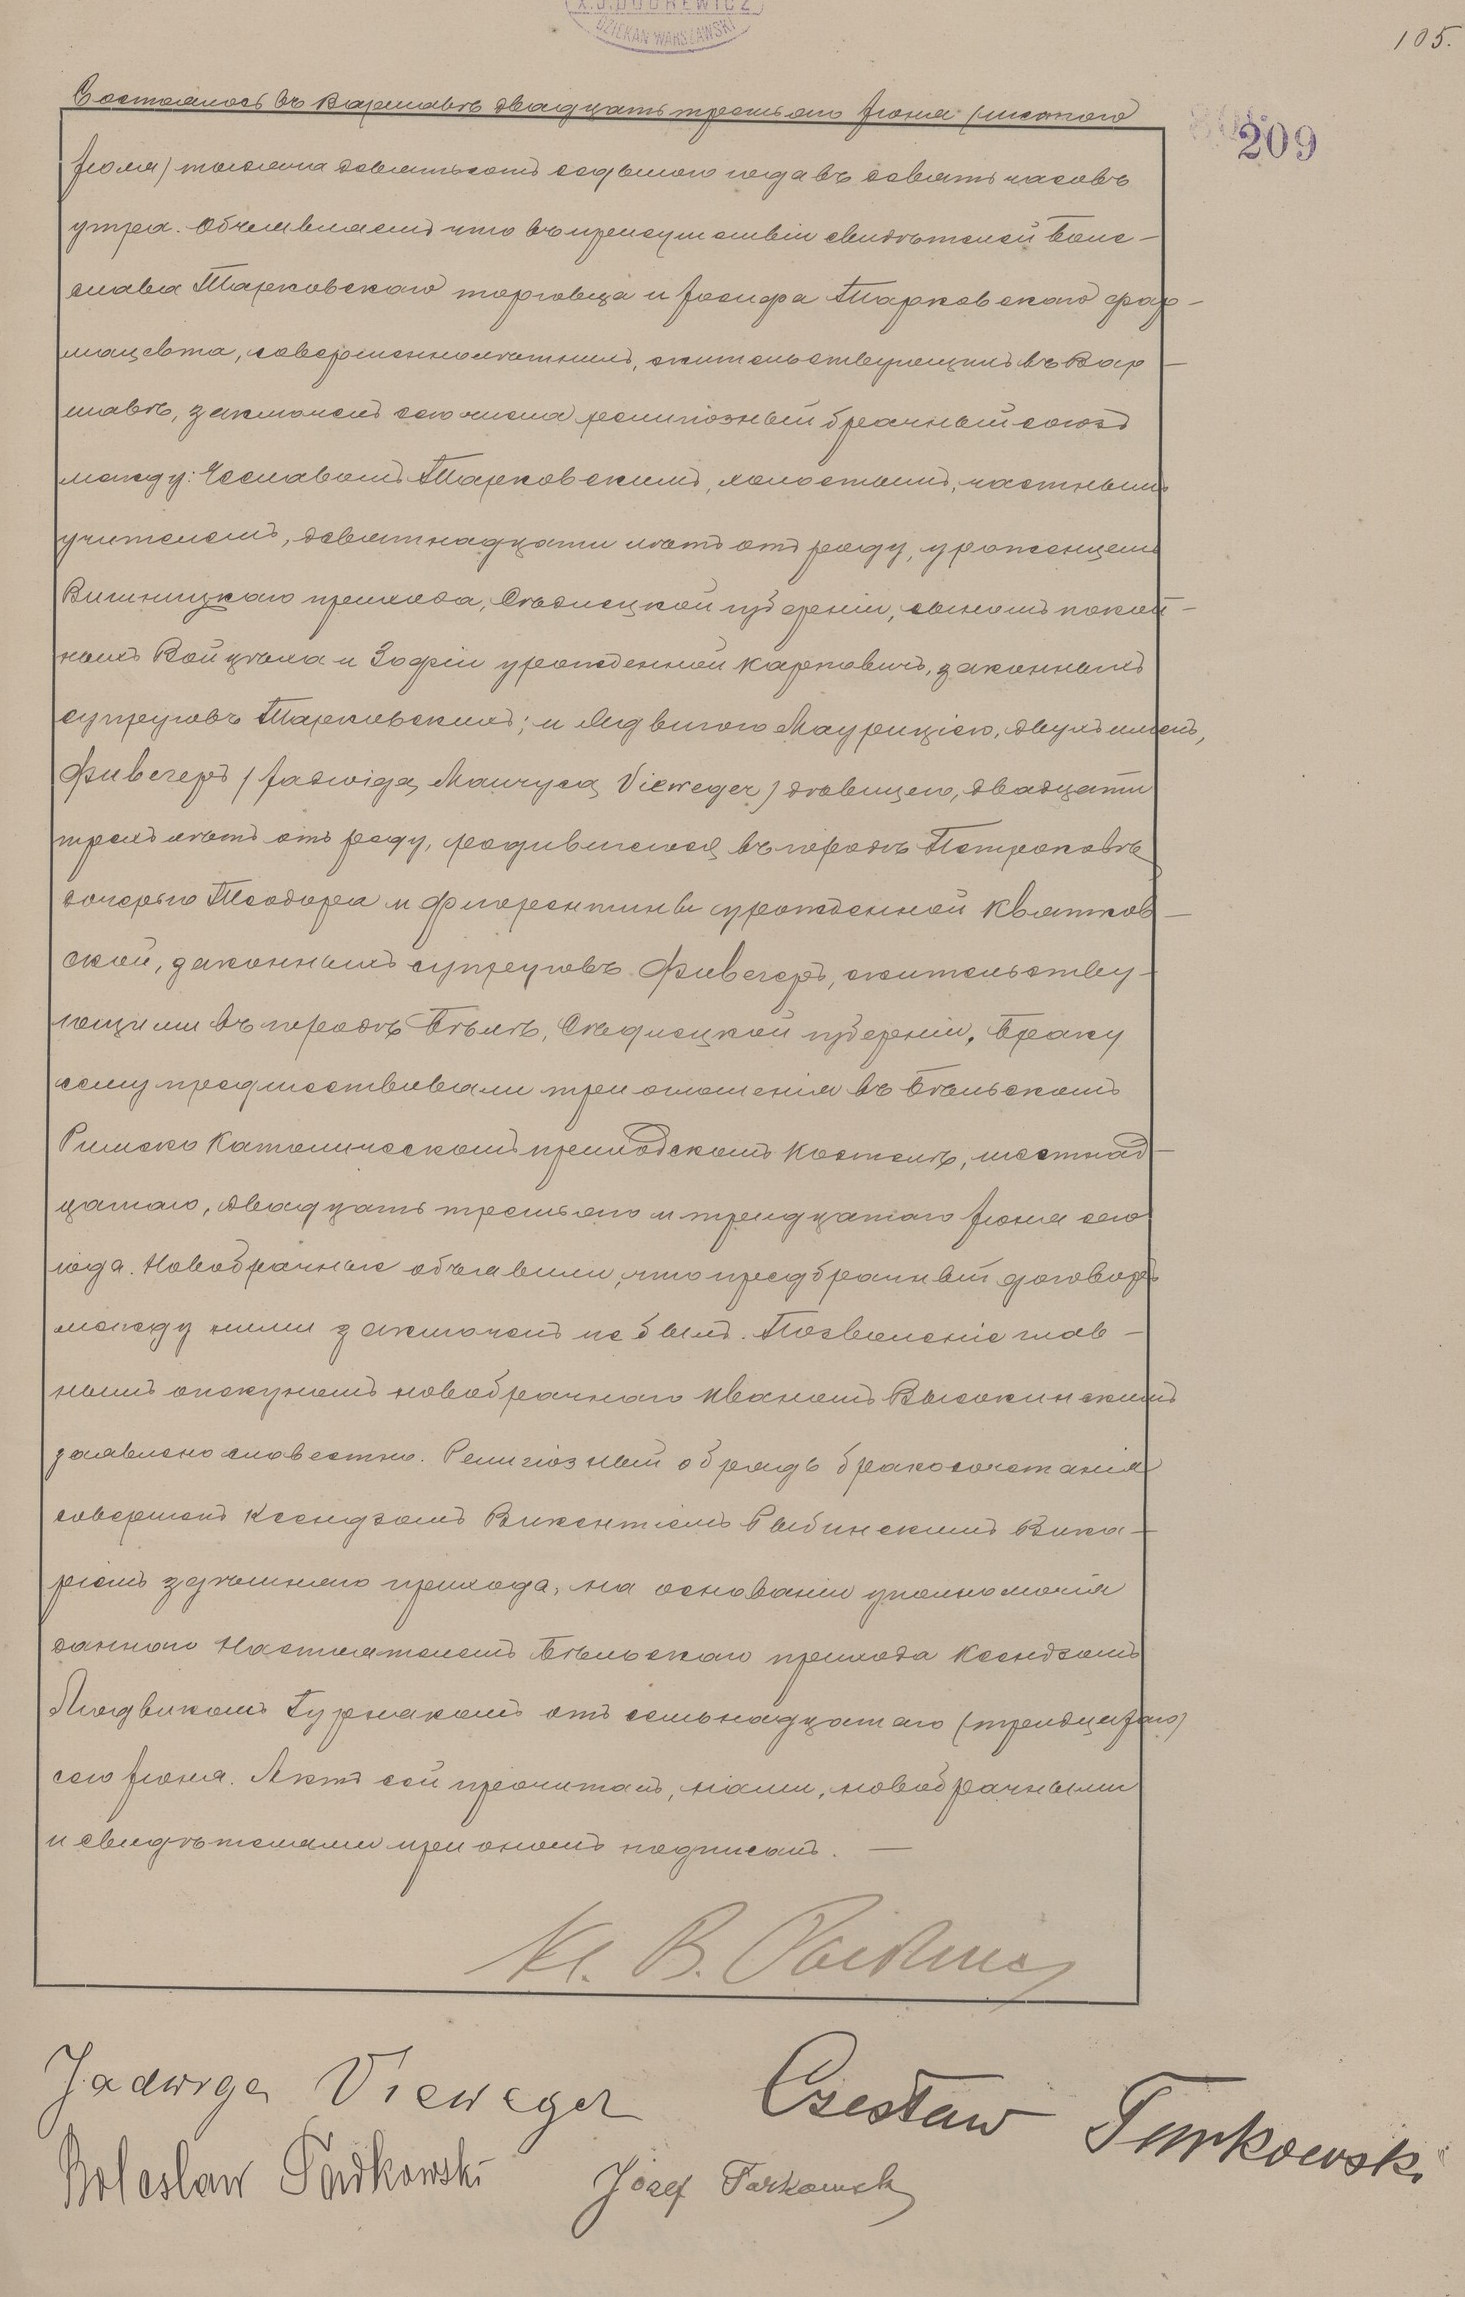 X. J. DUDREWICZ
DZIEKAN WARSZAWSKI
105.
209
Состоялось въ Варшавѣ двадцать третьяго Іюня (шестого
Іюля) тысяча девятьсотъ седьмого года въ девять часовъ
утра. Объявляемъ что въ присутствіи свидѣтелей Боле-
слава Тарковскаго торговца и Іосифа Тарковскаго фар-
мацевта, совершеннолѣтнихъ, жительствующихъ въ Вар-
шавѣ, заключенъ сего числа религіозный брачный союзъ
между: Чеславомъ Тарковскимъ, холостымъ, частнымъ
учителемъ, девятнадцати лѣтъ отъ роду, уроженцемъ
Вишницкаго прихода, Сѣдлецкой губерніи, сыномъ покой-
ныхъ Войцѣха и Зофіи урожденной Карповичъ, законныхъ
супруговъ Тарковскихъ; и Ядвигою Маурицією, двухъ именъ,
Фивегеръ (Jadwigą Maurycą Vieweger) дѣвицею, двадцати
трехъ лѣтъ отъ роду, родившеюся въ городѣ Петроковѣ
дочерью Теодора и Флорентины урожденной Квятков-
ской, законныхъ супруговъ Фивегеръ, жительству-
ющими въ городѣ Бѣлѣ, Сѣдлецкой губерніи. Браку
сему предшествовали три оглашенія въ Бѣльскомъ
Римско Католическомъ приходскомъ Костелѣ, шестнад-
цатаго, двадцать третьяго и тридцатаго Іюня сего
года. Новобрачные объявили, что предбрачный договоръ
между ними заключенъ не былъ. Позволеніе глав-
нымъ опекуномъ новобрачнаго Иваномъ Высокинскимъ
заявлено словестно. Религіозный обрядъ бракосочетанія
совершенъ Ксендзомъ Викентіемъ Рыбинскимъ Вика-
ріемъ здѣшняго прихода, на основаніи уполномочія
даннаго Настоятелемъ Бѣльскаго прихода Ксендзомъ
Людвикомъ отъ семьнадцатаго (тридцатаго)
сего Іюня. Актъ сей прочитанъ, нами, новобрачными
и свидѣтелями при ономъ подписанъ. —
Jadwiga Vieweger Czesław Tarkowski
Bolesław Tarkowski Józef Tarkowski